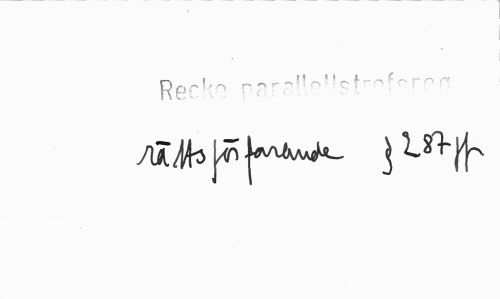 Recke parallellstrofereg
rättsförfarande § 287 ff